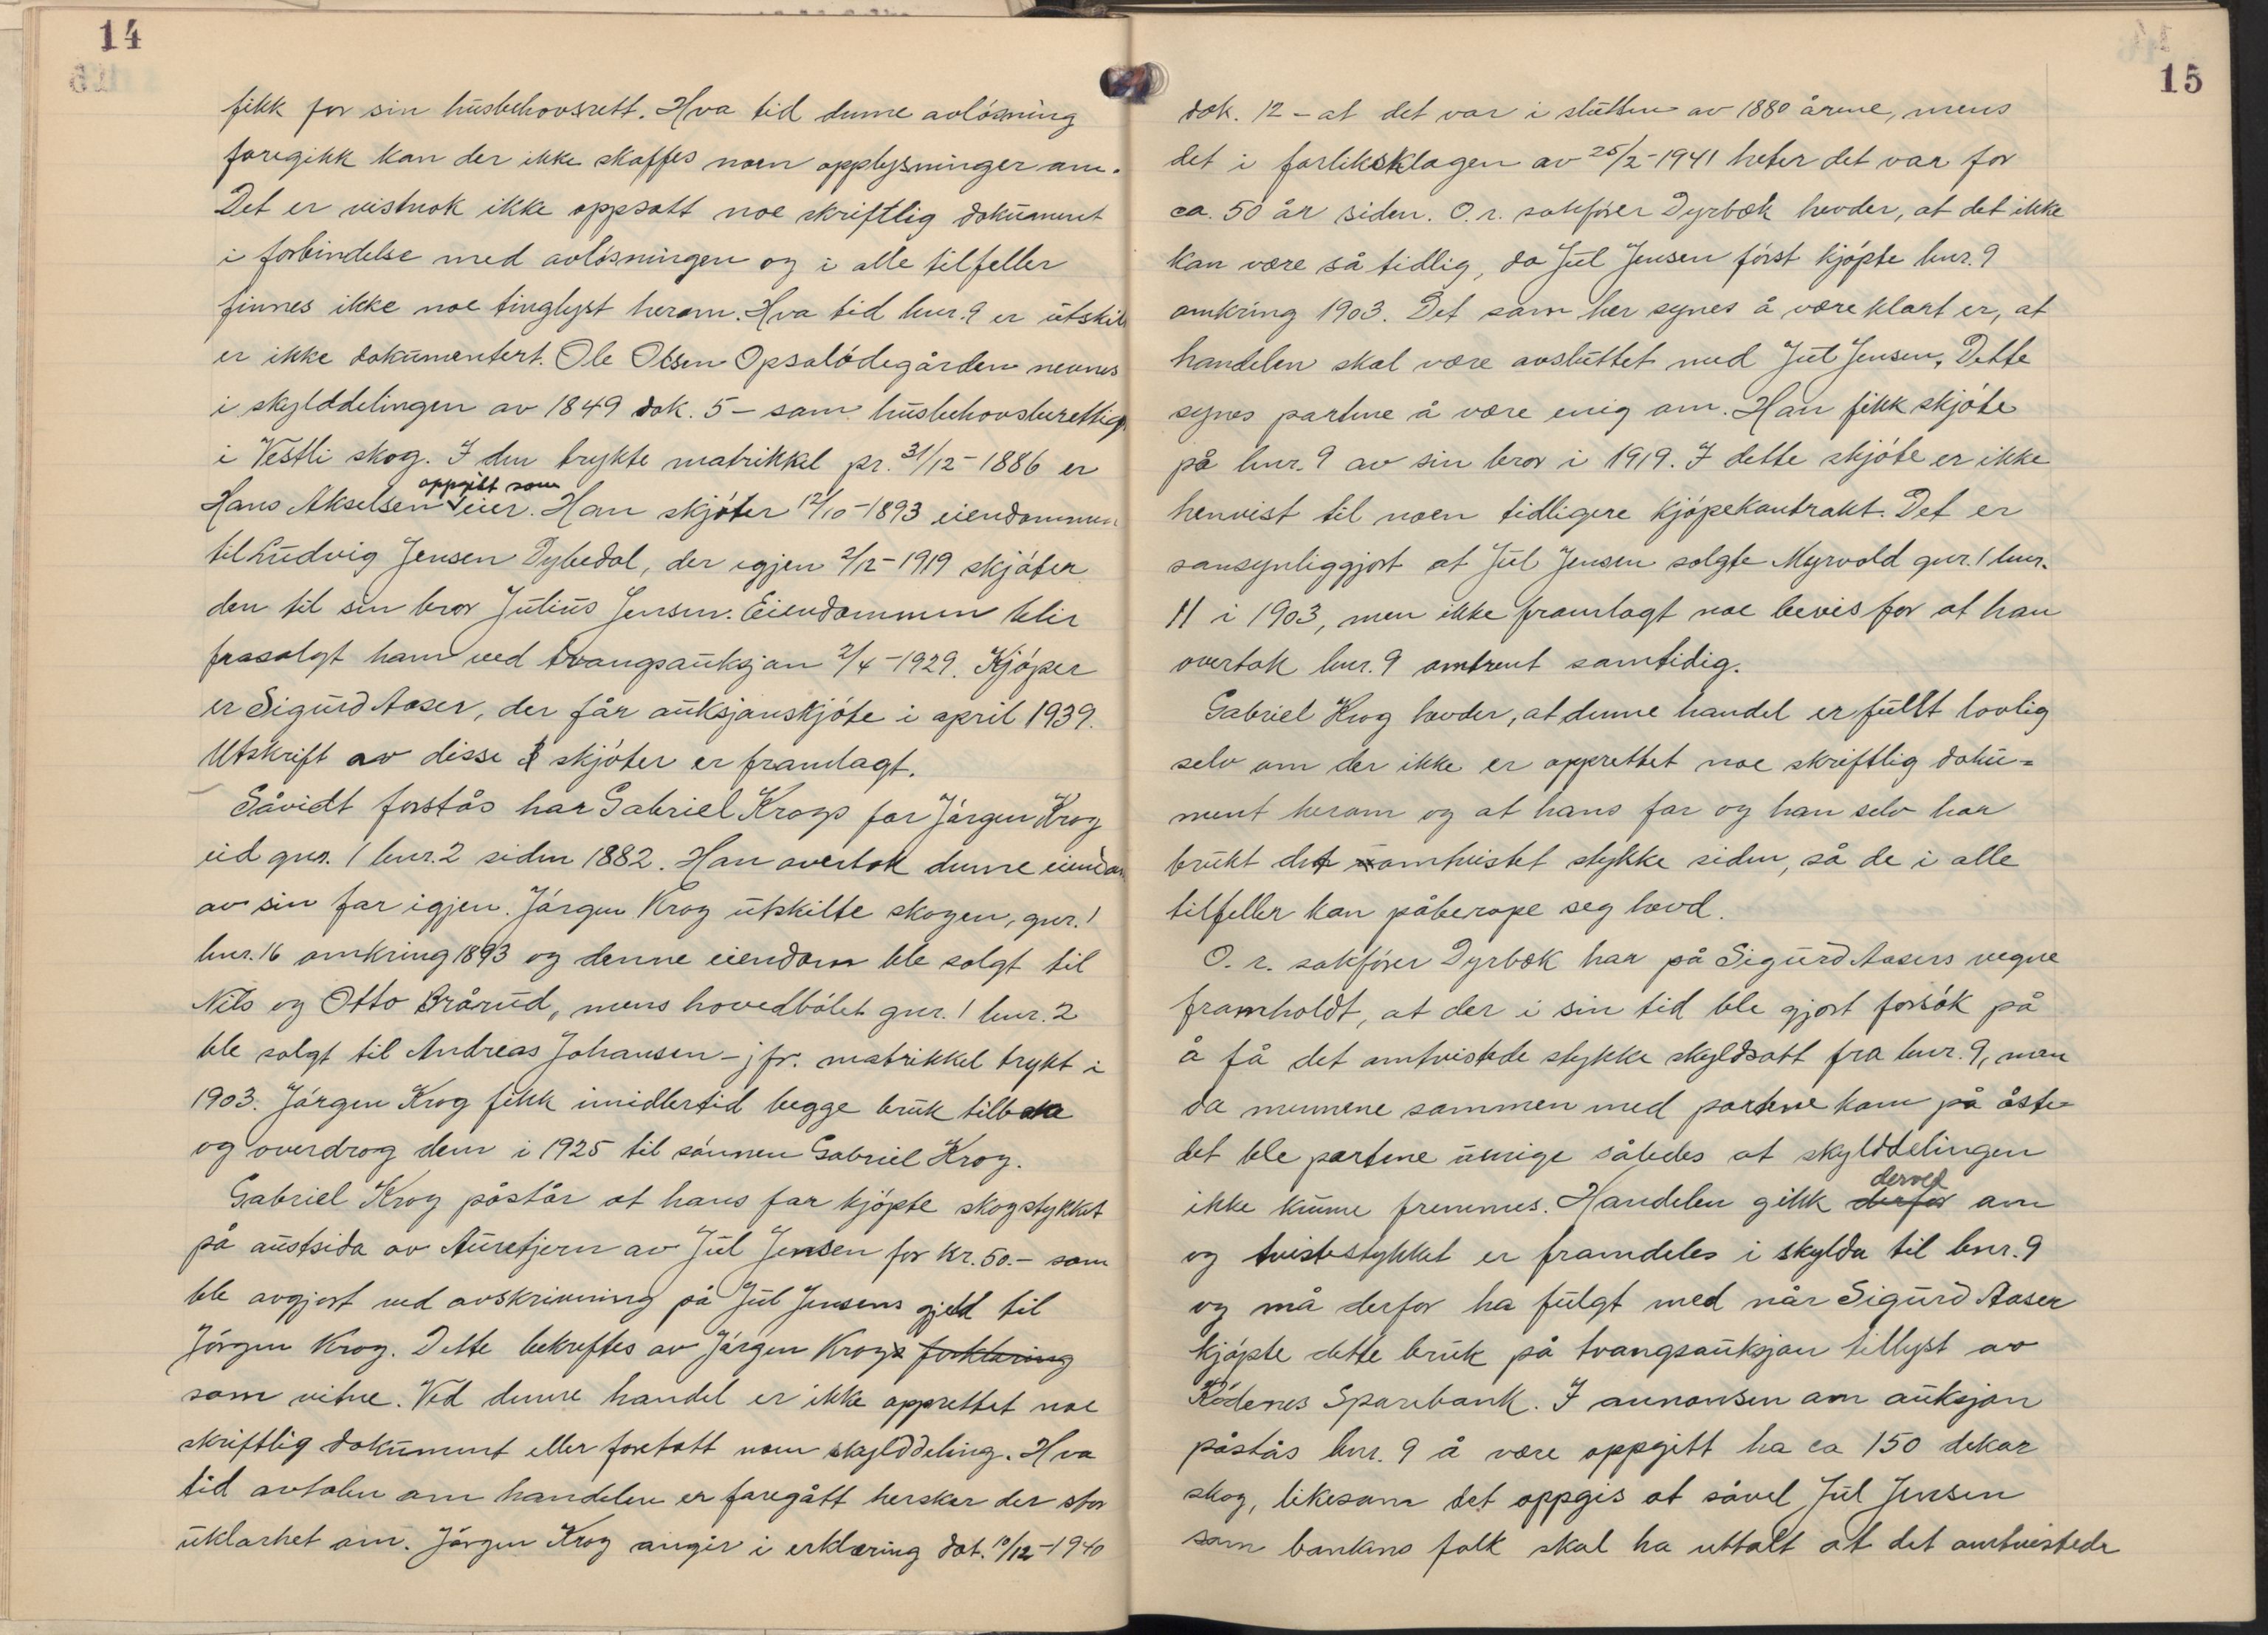 14
fikk for sin husbehovsrett. Hva tid denne avløsning
foregikk kan der ikke skaffes noen opplysninger om.
Det er vistnok ikke oppsatt noe skriftlig dokument
i forbindelse med avløsningen og i alle tilfeller
finnes ikke noe tinglyst herom. Hva tid bnr. 9 er utskilt
er ikke dokumentert. Ole Olsen Opsalødegården nevnes
i skylddelingen av 1849 dok. 5 - som husbehovsberettiget
i Vestli skog. I den trykte matrikkel pr. 31/12-1886 er
Hans Akselsen oppgitt som eier. Han skjøter 12/10-1893 eiendommen
til Ludvig Jensen Dybedal, der igjen 2/12-1919 skjøter
den til sin bror Julius Jensen. Eiendommen blir
frasolgt ham ved tvangsauksjon 2/4-1929. Kjøper
er Sigurd Aaser, der får auksjonskjøte i april 1939.
Utskrift av disse 3 skjøter er framlagt.
Såvidt forstås har Gabriel Krogs far Jørgen Krog
eid gnr. 1 bnr. 2 siden 1882. Han overtok denne eiendom
av sin far igjen. Jørgen Krog utskilte skogen, gnr. 1
bnr. 16 omkring 1893 og denne eiendom ble solgt til
Nils og Otto Brårud, mens hovedbølet gnr. 1 bnr. 2
ble solgt til Andreas Johansen - jfr. matrikkel trykt i
1903. Jørgen Krog fikk imidlertid begge bruk tilbake
og overdrog dem i 1925 til sønnen Gabriel Krog.
Gabriel Krog påstår at hans far kjøpte skogstykket
på austsida av Auretjern av Jul Jensen for kr. 50.- som
ble avgjort ved avskrivning på Jul Jensens gjeld til
Jörgen Krog. Dette bekreftes av Jørgen Krogs forklaring
som vitne. Ved denne handel er ikke opprettet noe
skriftlig dokument eller foretatt noen skylddeling. Hva
tid avtalen om handelen er foregått hersker der stor
uklarhet om. Jørgen Krog angir i erklæring dat. 10/12-1940
15
dok. 12 - at det var i slutten av 1880 årene, mens
det i forliksklagen av 25/2-1941 heter det var for
ca. 50 år siden. O.r. sakfører Dyrbæk hevder, at det ikke
kan være så tidlig, da Jul Jensen først kjøpte bnr. 9
omkring 1903. Det som her synes å være klart er, at
handelen skal være avsluttet med Jul Jensen. Dette
synes partene å være enig om. Han fikk skjøte
på bnr. 9 av sin bror i 1919. I dette skjøte er ikke
henvist til noen tidligere kjøpekontrakt. Det er
sansynliggjort at Jul Jensen solgte Myrvold gnr. 1 bnr.
11 i 1903, men ikke framlagt noe bevis for at han
overtok bnr. 9 omtrent samtidig.
Gabriel Krog hevder, at denne handel er fullt lovlig
selv om der ikke er opprettet noe skriftlig doku=
ment herom og at hans far og han selv har
brukt det omtvistet stykke siden, så de i alle
tilfeller kan påberope seg hevd.
O.r. sakfører Dyrbæk har på Sigurd Aasers vegne
framholdt, at der i sin tid ble gjort forsøk på
å få det omtvistede stykke skyldsatt fra bnr. 9, men
da mennene sammen med partene kom på åste-
det ble partene uenige således at skylddelingen
ikke kunne fremmes. Handelen gikk derfor derved om
og tvistestykket er framdeles i skylda til bnr. 9
og må derfor ha fulgt med når Sigurd Aaser
kjøpte dette bruk på tvangsauksjon tillyst av
Rødenes Sparebank. I annonsen om auksjon
påstås bnr. 9 å være oppgitt ha ca 150 dekar
skog, likesom det oppgis at såvel Jul Jensen
som bankens folk skal ha uttalt at det omtvistede